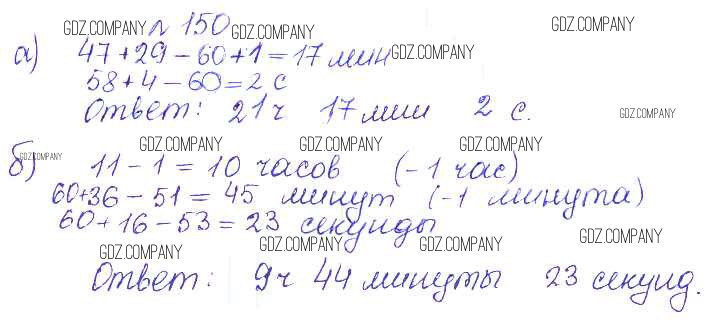 № 150
а) 47 + 29 - 60 + 1 = 17 мин
58 + 4 - 60 = 2 с
Ответ: 21 ч 17 мин 2 с.
б) 11 - 1 = 10 часов (-1 час)
60+36 - 51 = 45 минут (-1 минута)
60 + 16 - 53 = 23 секунды
Ответ: 9 ч 44 минуты 23 секунд.
GDZ.COMPANY
GDZ.COMPANY
GDZ.COMPANY
GDZ.COMPANY
GDZ.COMPANY
GDZ.COMPANY
GDZ.COMPANY
GDZ.COMPANY
GDZ.COMPANY
GDZ.COMPANY
GDZ.COMPANY
GDZ.COMPANY
GDZ.COMPANY
GDZ.COMPANY